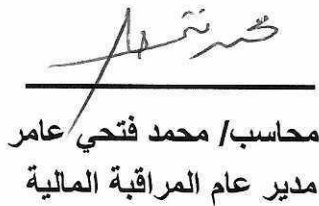 محاسب/ محمد فتحي عامر
مدير عام المراقبة المالية